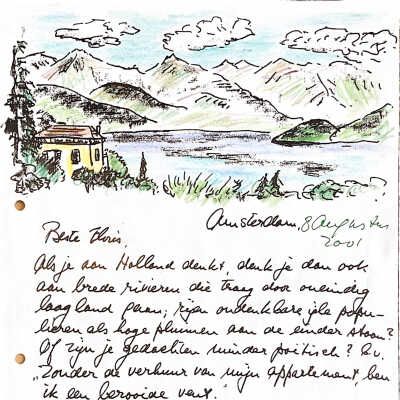 Amsterdam, 8 Augustus
2001
Beste Floris,
Als je aan Holland denkt, denk je dan ook
aan brede rivieren die traag door oneindig
laagland gaan; rijen ondenkbare ijle popu-
lieren als hoge pluimen aan de einder staan?
Of zijn je gedachten minder poëtisch? B.v.
„Zonder de verhuur van mijn appartement, ben
ik een berooide vent."